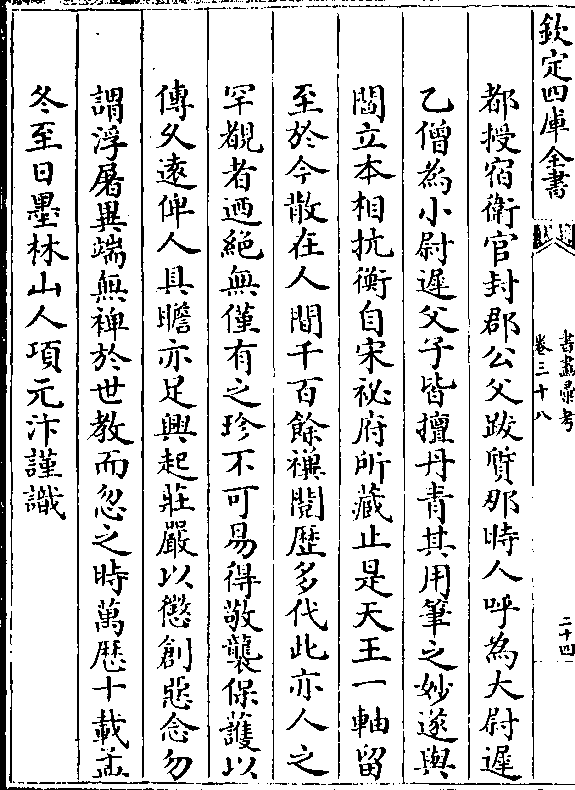 欽定四庫全書
書畵彚考
卷三十八
二十四
都授宿衛官封郡公父跋質那時人呼為大尉遲
乙僧為小尉遲父子皆擅丹青其用筆之妙遂與
閻立本相抗衡自宋祕府所藏止是天王一軸留
至於今散在人間千百餘禩閲歴多代此亦人之
罕覯者迺絶無僅有之珍不可易得敬襲保護以
傳久遠俾人具瞻亦足興起莊嚴以懲創惡念勿
謂浮屠異端無裨於世教而忽之時萬歴十載孟
冬至日墨林山人項元汴謹識